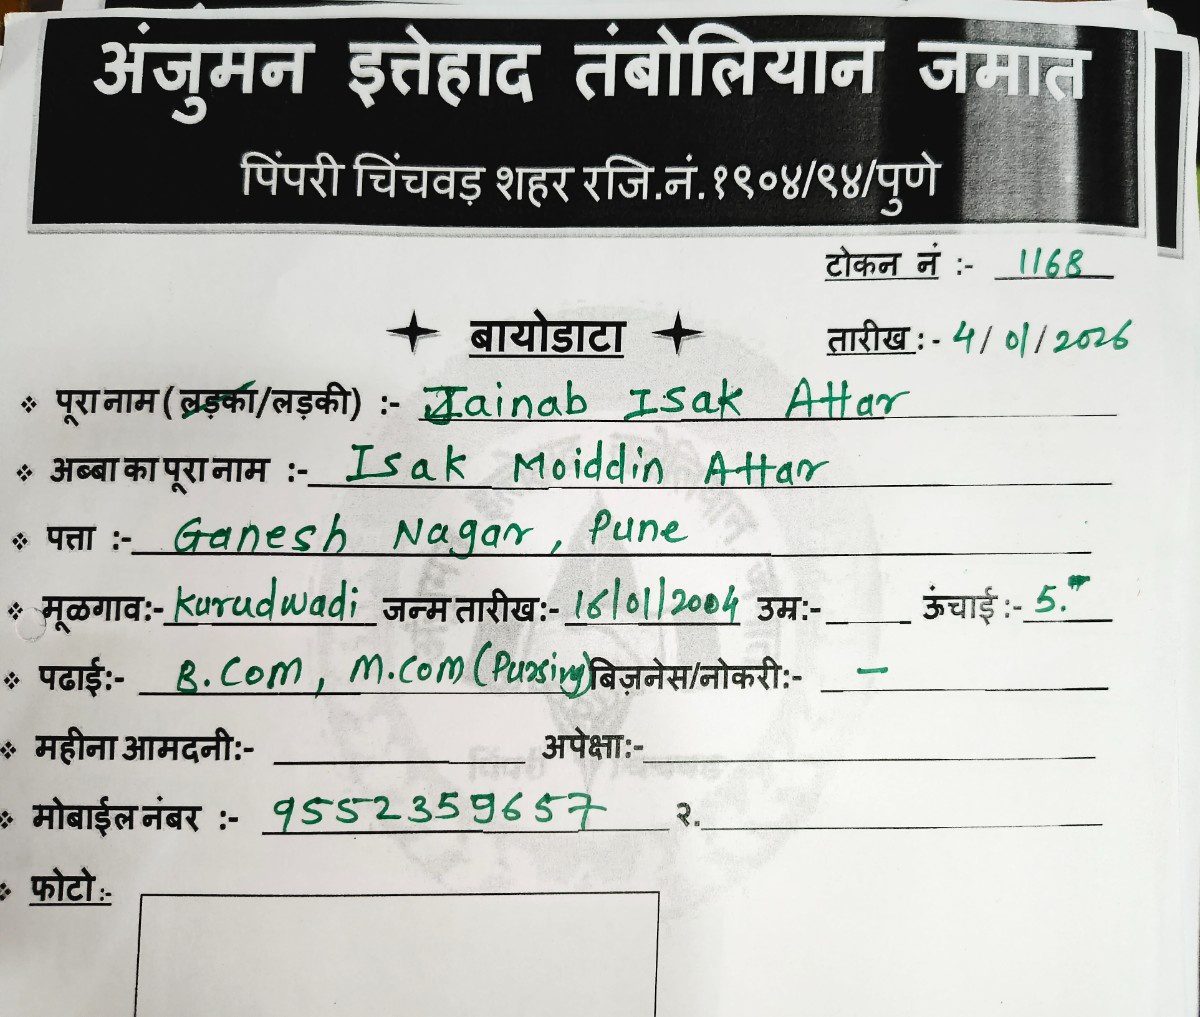 अंजुमन इत्तेहाद तंबोलियान जमात
पिंपरी चिंचवड़ शहर रजि.नं.१९०४/९४/पुणे
टोकन नं :- 1168
बायोडाटा
तारीख :- 4/01/2026
पूरा नाम (लड़का/लड़की) :- Jainab Isak Attar
अब्बा का पूरा नाम :- Isak Moiddin Attar
पत्ता :- Ganesh Nagar, Pune
मूळगाव:- Kurudwadi जन्म तारीख:- 16/01/2004 उम्र:- ऊंचाई :- 5."
पढाई:- B.Com, M.Com (Pursing) बिज़नेस/नोकरी:- -
महीना आमदनी:- अपेक्षा:-
मोबाईल नंबर :- 9552359657 २.
फोटो:-